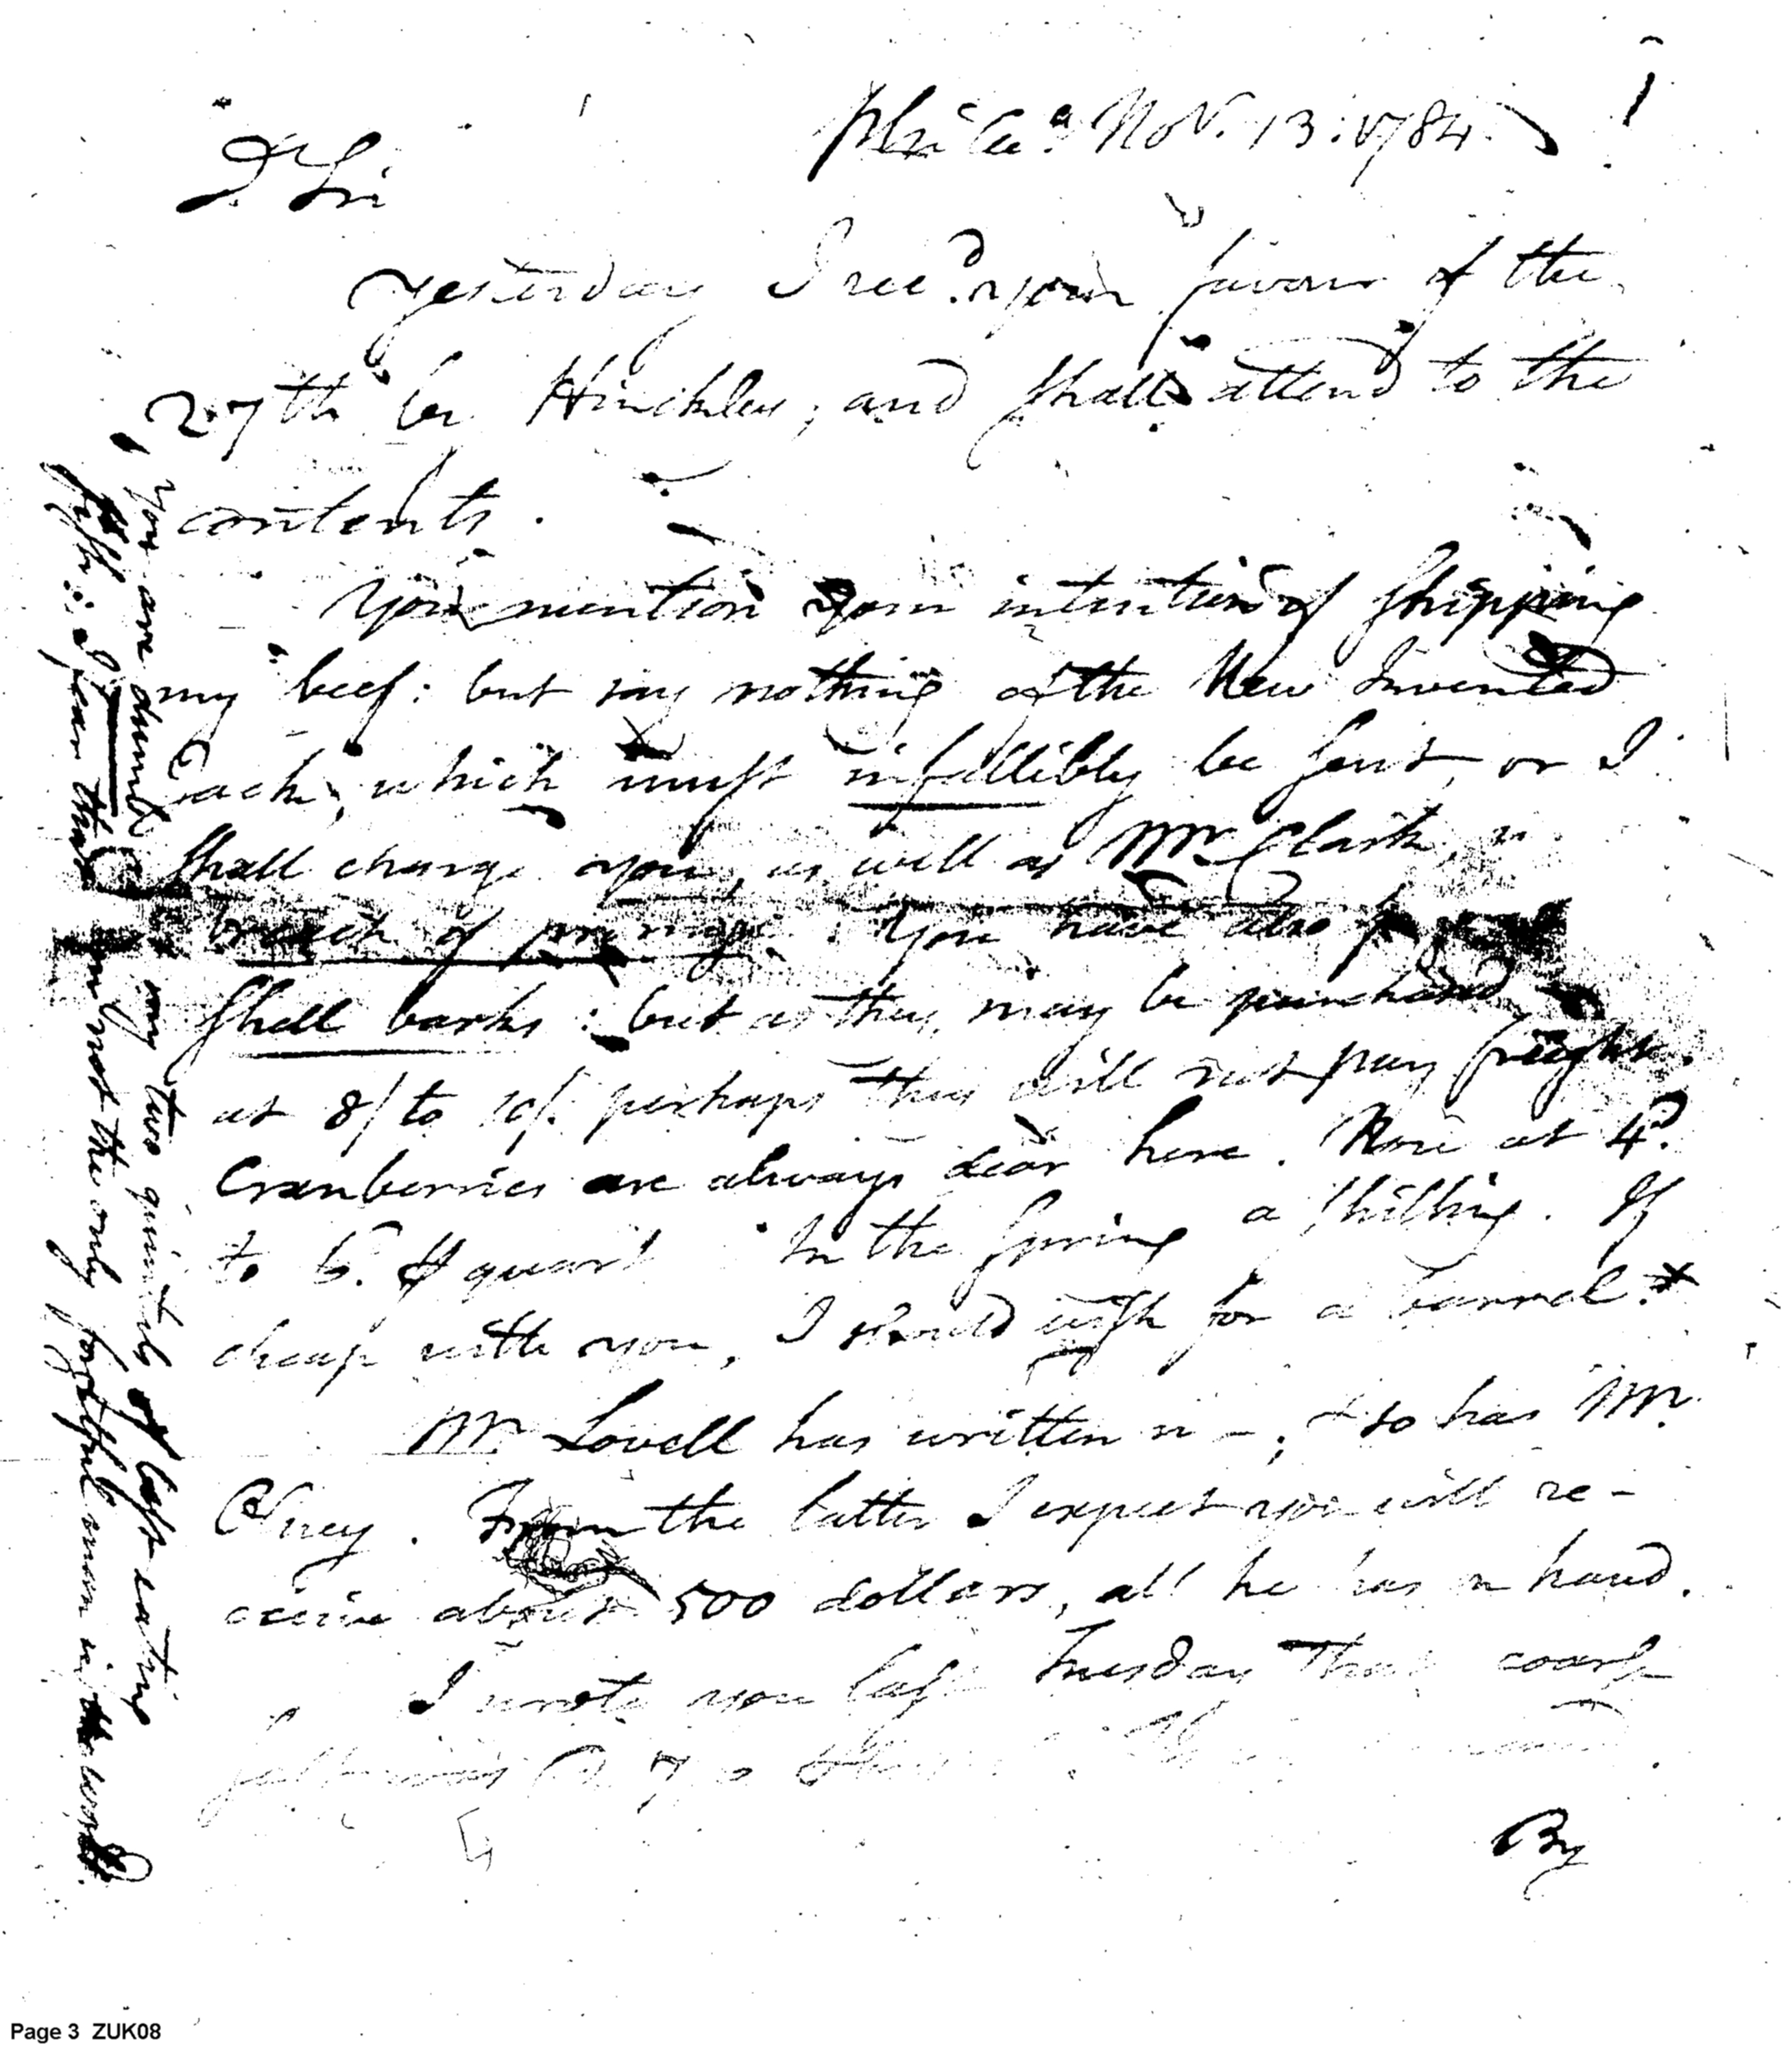 Philaª. Nov. 13. 1784.
Dr Sir
Yesterday I recd. your favour of the
27th by Hinckley, and shall attend to the
contents.
You mention your intention of shipping
my beef: but say nothing of the New Invented
Jack, which must infallibly be sent, or I
shall charge you, as well as Mr. Clark,
breach of promise. You have also
shell barks: but as they may be purchased
at 8/ to 10/. perhaps they will not pay freight.
Cranberries are always dear here. Now at 4d.
to 6. quart In the spring a shilling. If
cheap with you, I should wish for a barrel.*
Mr. Lovell has written me; & so has Mr.
Olney. From the latter I expect you will re-
ceive about 500 dollars, all he has on hand.
I wrote you last Tuesday that coarse
salt was
By
* You are dumb my two quintals of best eating
fish: I fear that I am not the only forgetful man in the world.
Page 3 ZUK08